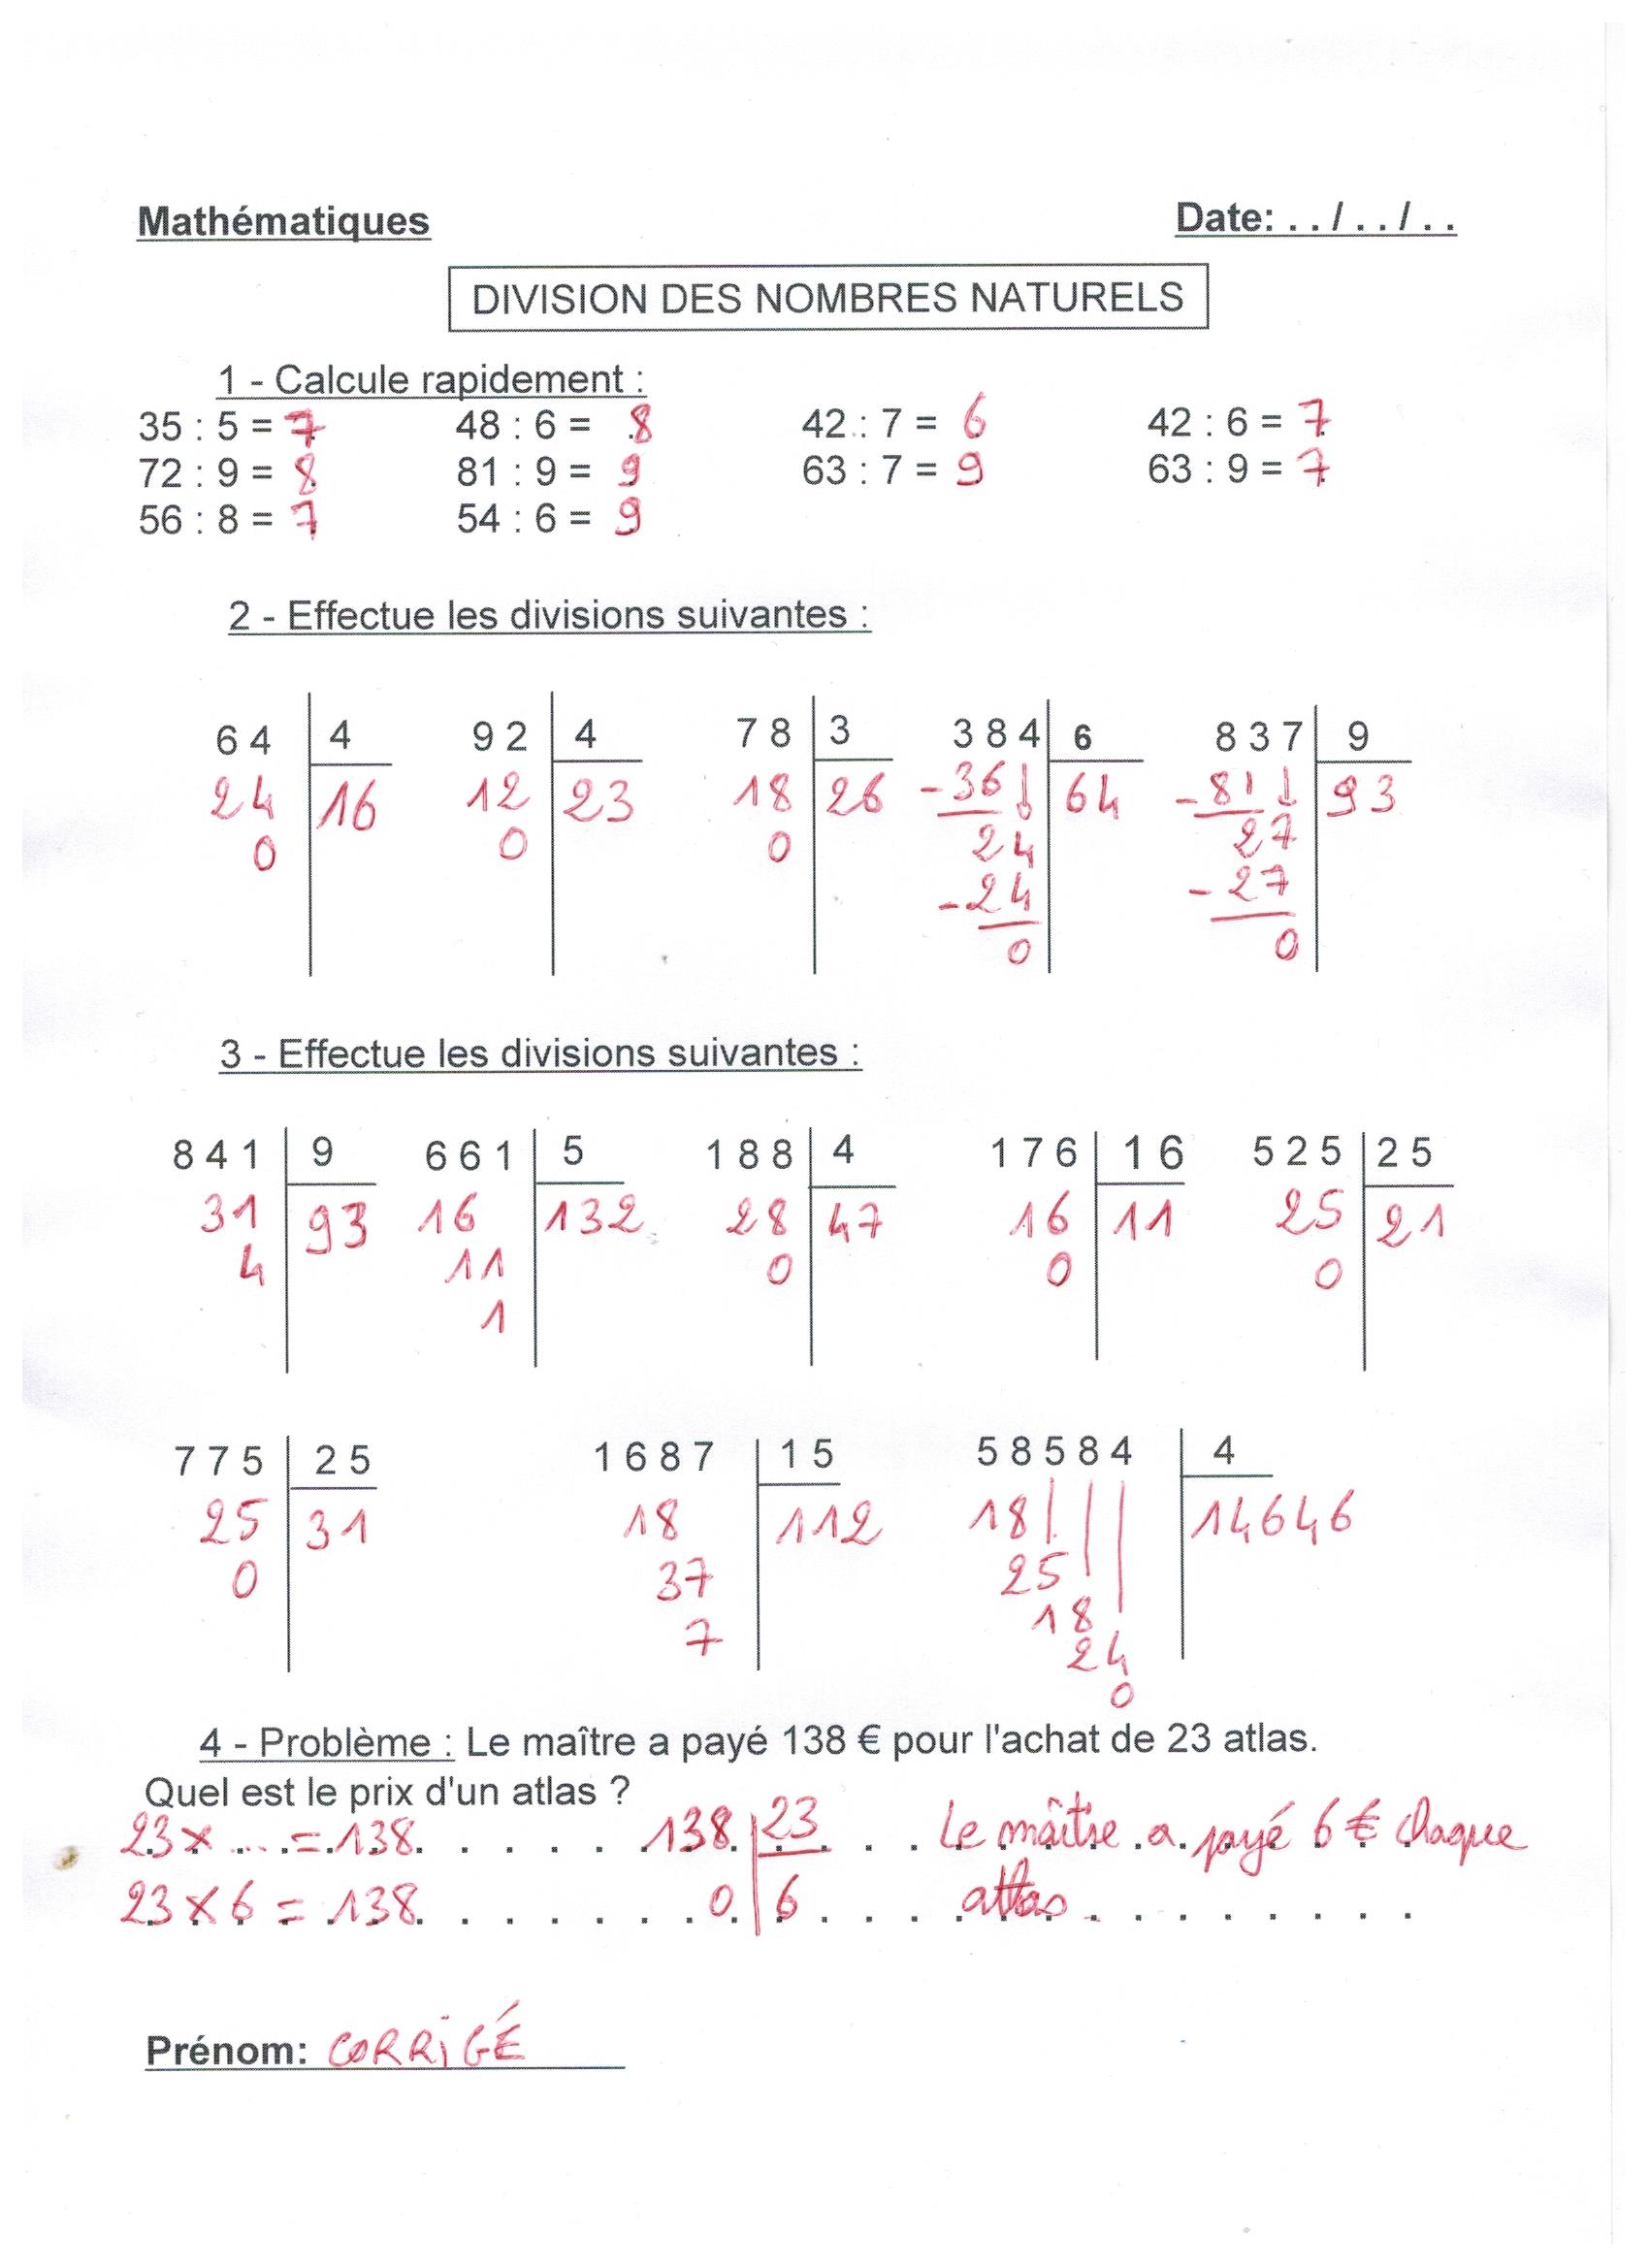 Mathématiques Date: . . / . . / . .
DIVISION DES NOMBRES NATURELS
1 - Calcule rapidement :
35 : 5 = 7 48 : 6 = 8 42 : 7 = 6 42 : 6 = 7
72 : 9 = 8 81 : 9 = 9 63 : 7 = 9 63 : 9 = 7
56 : 8 = 7 54 : 6 = 9
2 - Effectue les divisions suivantes :
6 4 4 9 2 4 7 8 3 3 8 4 6 8 3 7 9
24 16 12 23 18 26 -36 64 -81 93
0 0 0 24 27
-24 -27
0 0
3 - Effectue les divisions suivantes :
8 4 1 9 6 6 1 5 1 8 8 4 1 7 6 1 6 5 2 5 2 5
31 93 16 132 28 47 16 11 25 21
4 11 0 0 0
1
7 7 5 2 5 1 6 8 7 1 5 5 8 5 8 4 4
25 31 18 112 18 14646
0 37 25
7 18
24
0
4 - Problème : Le maître a payé 138 € pour l'achat de 23 atlas.
Quel est le prix d'un atlas ?
23 x .... = 138 138 23 Le maître a payé 6 € chaque
23 x 6 = 138 0 6 atlas
Prénom: CORRIGÉ